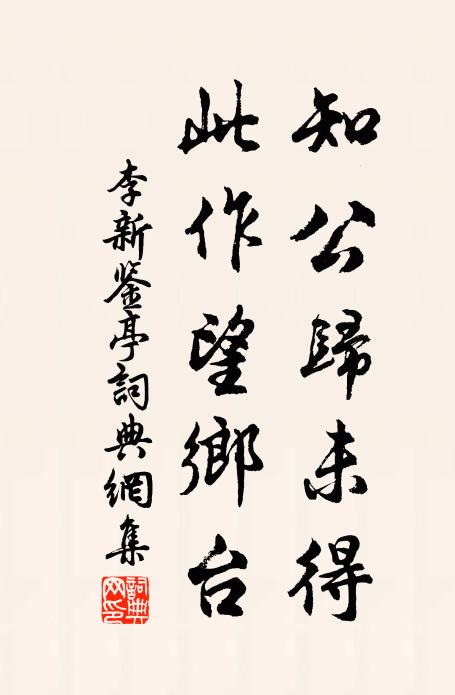 知公歸未得
此作望鄉台
李新鉴亭詞典網集
詞典网印